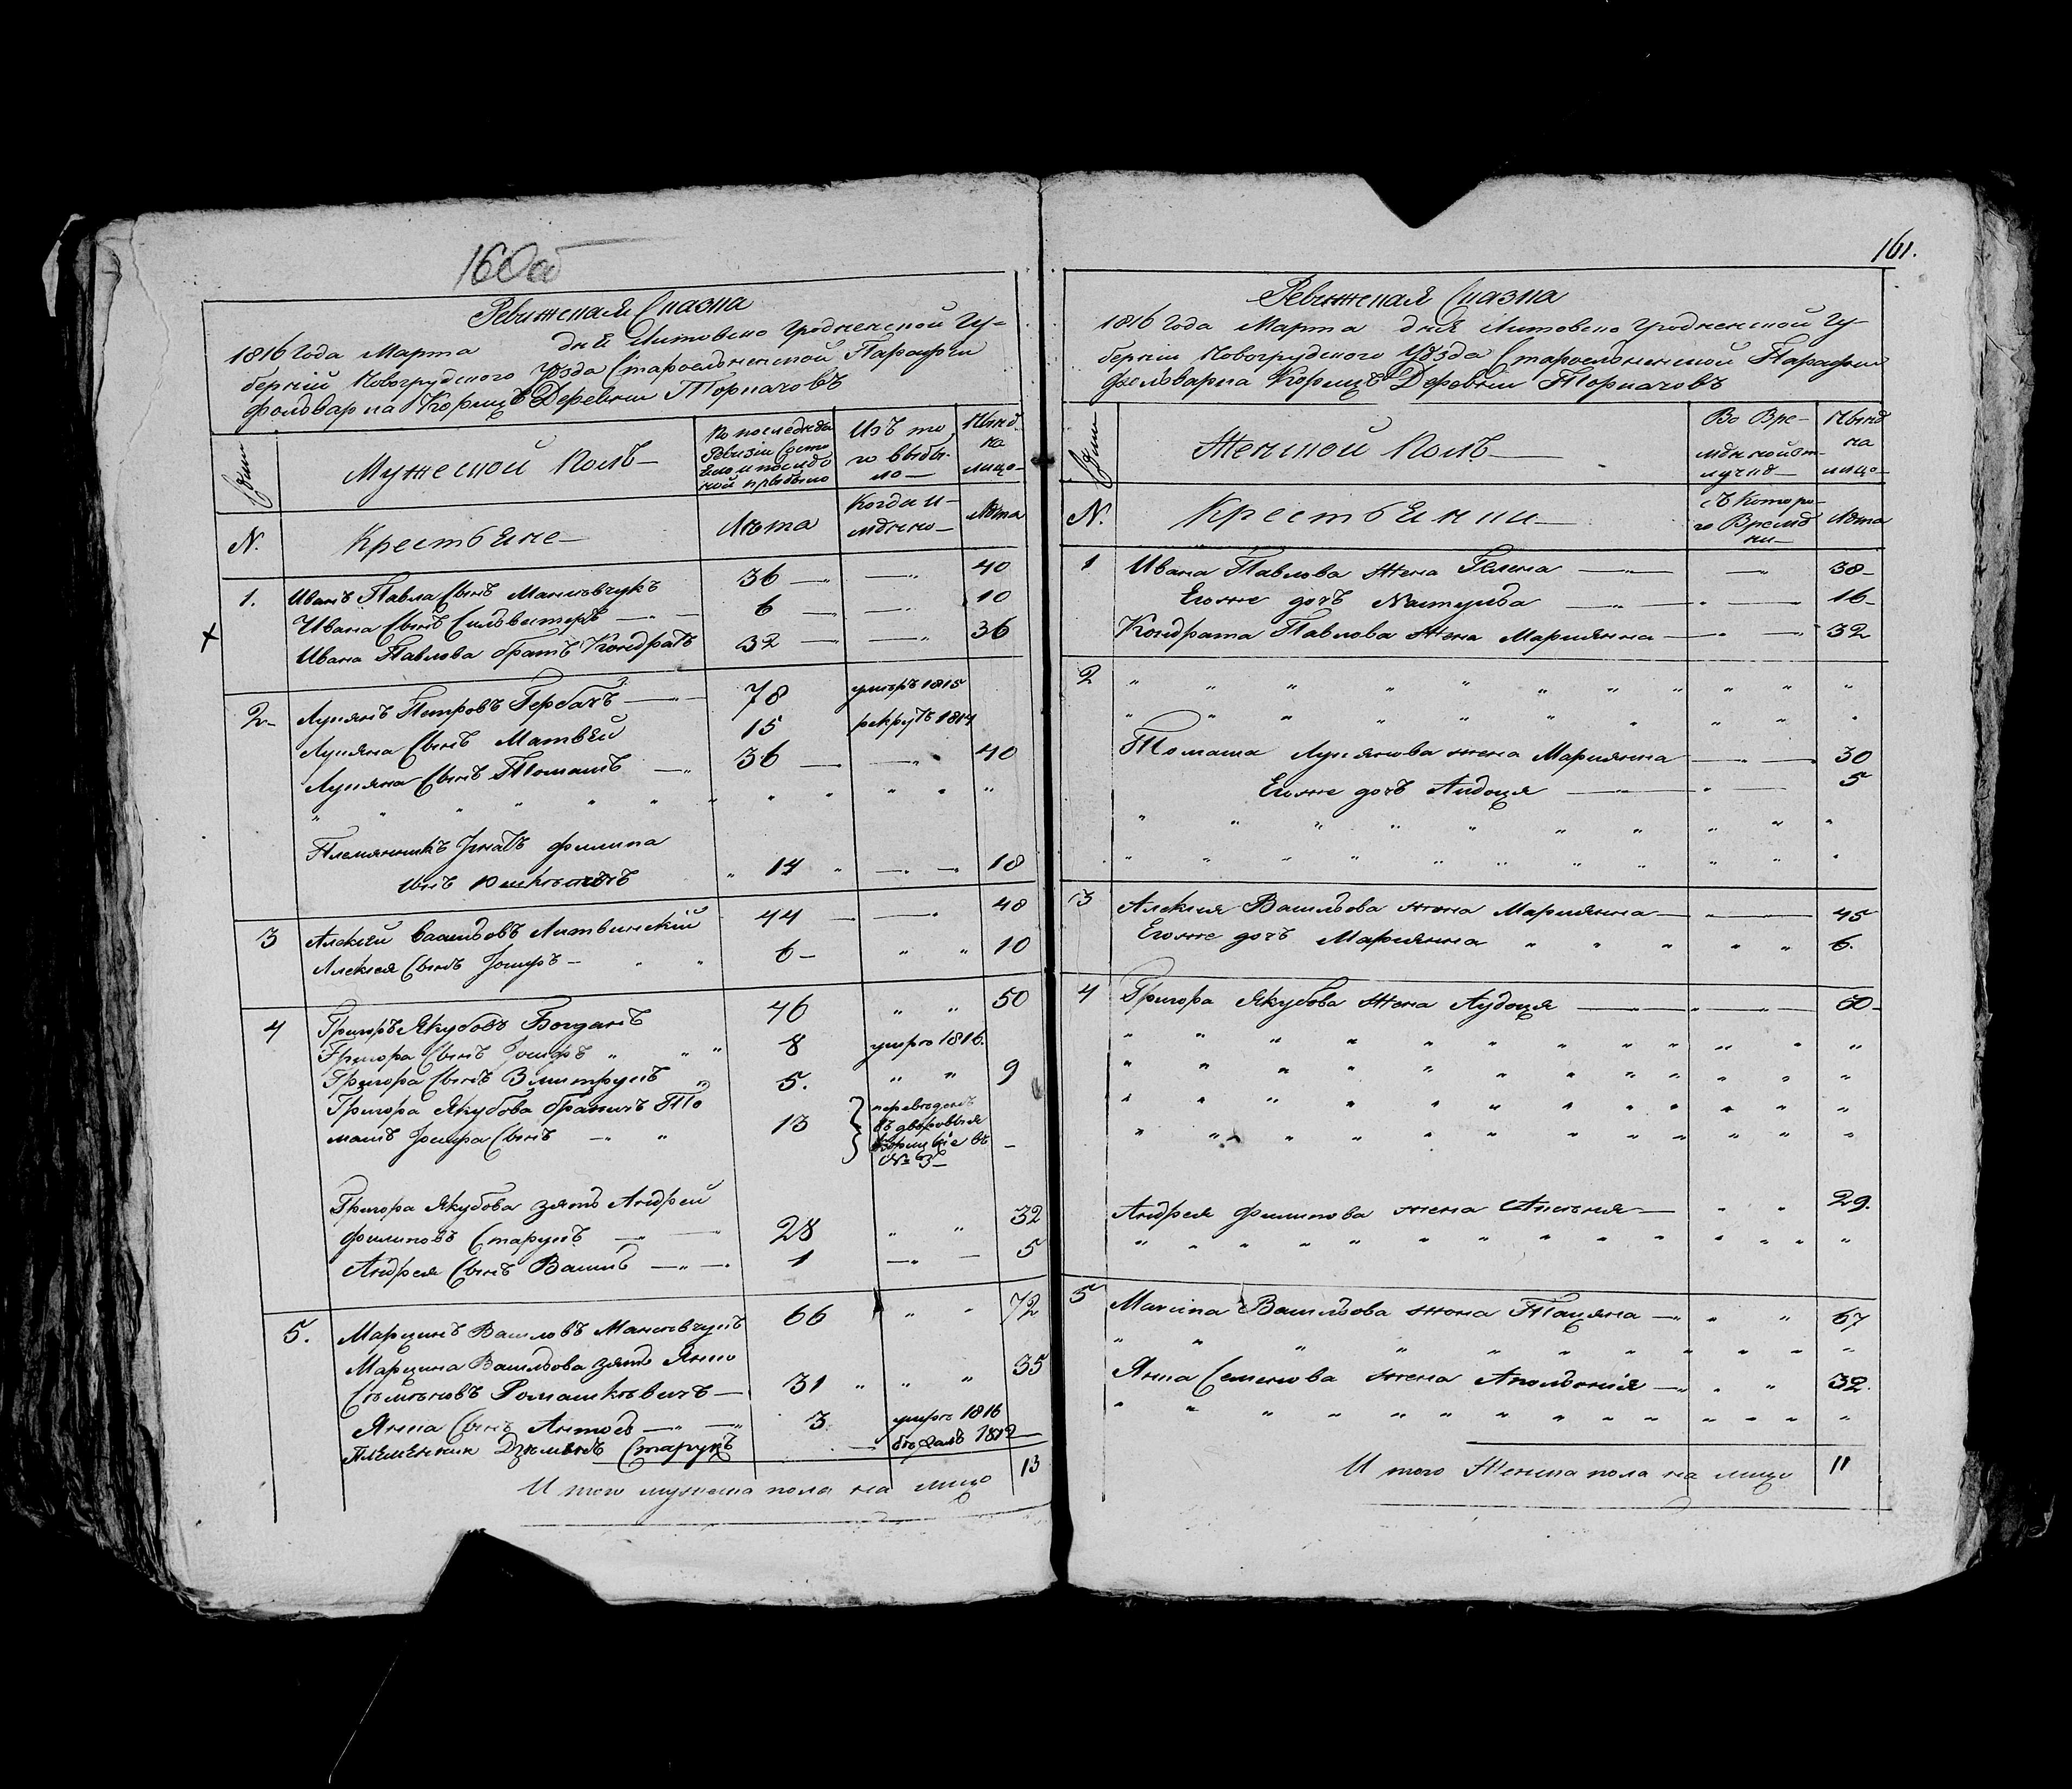 160об
Ревижская Сказка
1816 Года Марта дня Литовско Гродненской Гу-
берній Новогрудского Уѣзда Староельненской Парафіи
фольварка Корицъ Деревни Торкачовъ
Мужеской Полъ
По последнѣй
Ревизіи Состо
Яло и после
ной прибыло
Изъ то
го выбы-
ло
Нынѣ
на
лицо
N.
Крестьяне
Лѣта
Когда и-
мѣнно
Лѣта
1. Иванъ Павла Сынъ Маньковчукъ 36 40
Ивана Сынъ Сильвестеръ 6 10
Ивана Павлова братъ Кондратъ 32 36
2 Лукянъ Петровъ Гербачъ 78 умеръ 1815
Лукяна Сынъ Матвѣй 15 рекрутъ 1814
Лукяна Сынъ Томашъ 36 40
Племянникъ Игнатъ Филипа
сынъ 14 18
3 Алексѣй Василѣовъ Литвинскій 44 48
Алексея Сынъ Іосифъ 6 10
4 Григоръ Якубовъ Богданъ 46 50
Григора Сынъ Іосифъ 8 умръ 1816.
Григора Сынъ Змитрукъ 5. 9
Григора Якубова братичъ То
машъ Іосифа Сынъ 13
переведенъ
въ дворовыя
Корицкіе въ
№ 3
Григора Якубова зять Андрей
Филиповъ Старукъ 28 32
Андрея Сынъ Василь 1 5
5. Марцинъ Василовъ Маньковчукъ 66 72
Марцина Василѣова зять Янко
Сѣмѣновъ Ромашкѣвичъ 31 35
Янка Сынъ Антось 3 умръ 1816
Плѣменник Дземянъ Старукъ бѣжалъ 1812
И того мужеска пола на лицо 13
161.
Ревижская Сказка
1816 Года Марта дня Литовско Гродненской Гу-
берніи Новогрудского Уѣзда Староельненской Парафіи
фольварка Корицъ Деревни Торкачовъ
Женской Полъ
Во Вре-
мѣнной от-
лучкѣ
Нынѣ
на
лицо
N.
Крестьянки
съ Которо-
го Времѣ
ни
Лѣта
1 Ивана Павлова Жена Гелена 38
Егоже дочь Настузя 16
Кондрата Павлова Жена Марианна 32
2
Томаша Лукянова жена Марианна 30
Егоже дочь Аудоця 5
3 Алексия Василѣова жена Марианна 45
Егоже дочь Марианна 6.
4 Григора Якубова Жена Аудоця 50
Андрея Филипова жена 29.
5 Марцина Василѣова жена Тацяна 67
Янка Семенова жена Аполёнія 32.
И того Женска пола на лицо 11